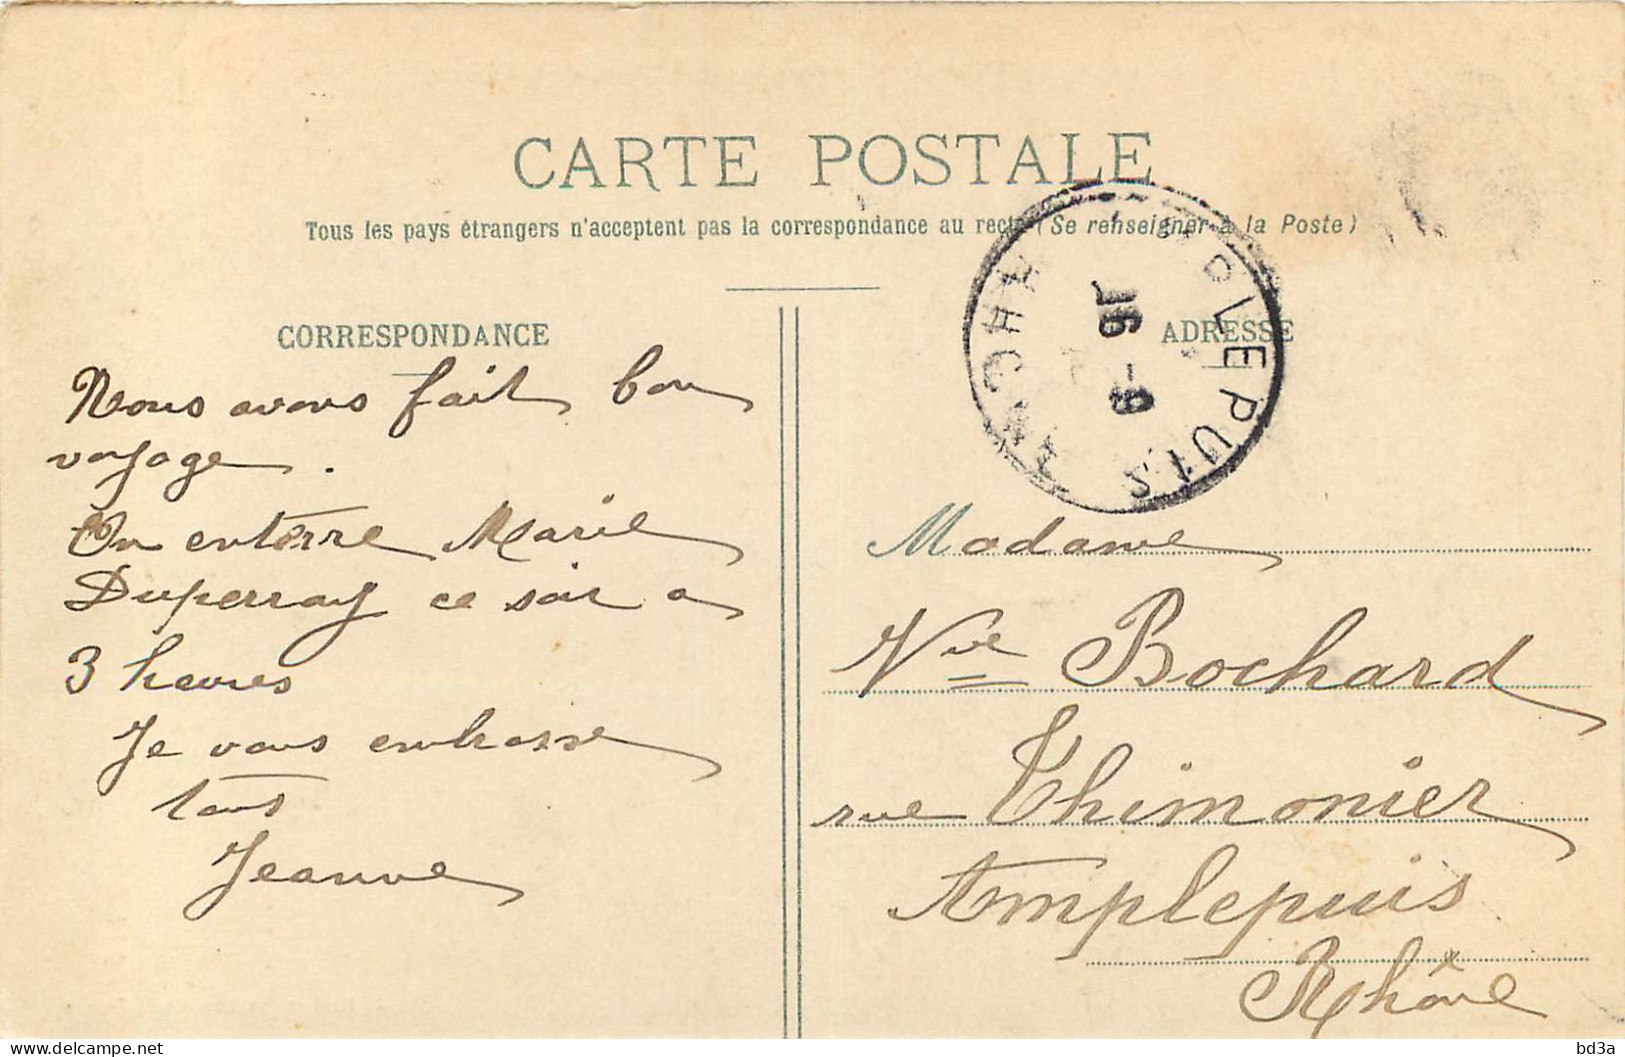 CARTE POSTALE
Tous les pays étrangers n'acceptent pas la correspondance au recto (Se renseigner à la Poste)
CORRESPONDANCE
Nous avons fait bon
voyage.
On enterre Marie
Duperray ce soir a
3 heures
Je vous embrasse
tous
Jeanne
PLEPUIS
ADRESSE
Madame
Vve Bochard
rue Thimonier
Amplepuis
Rhône
bd3a